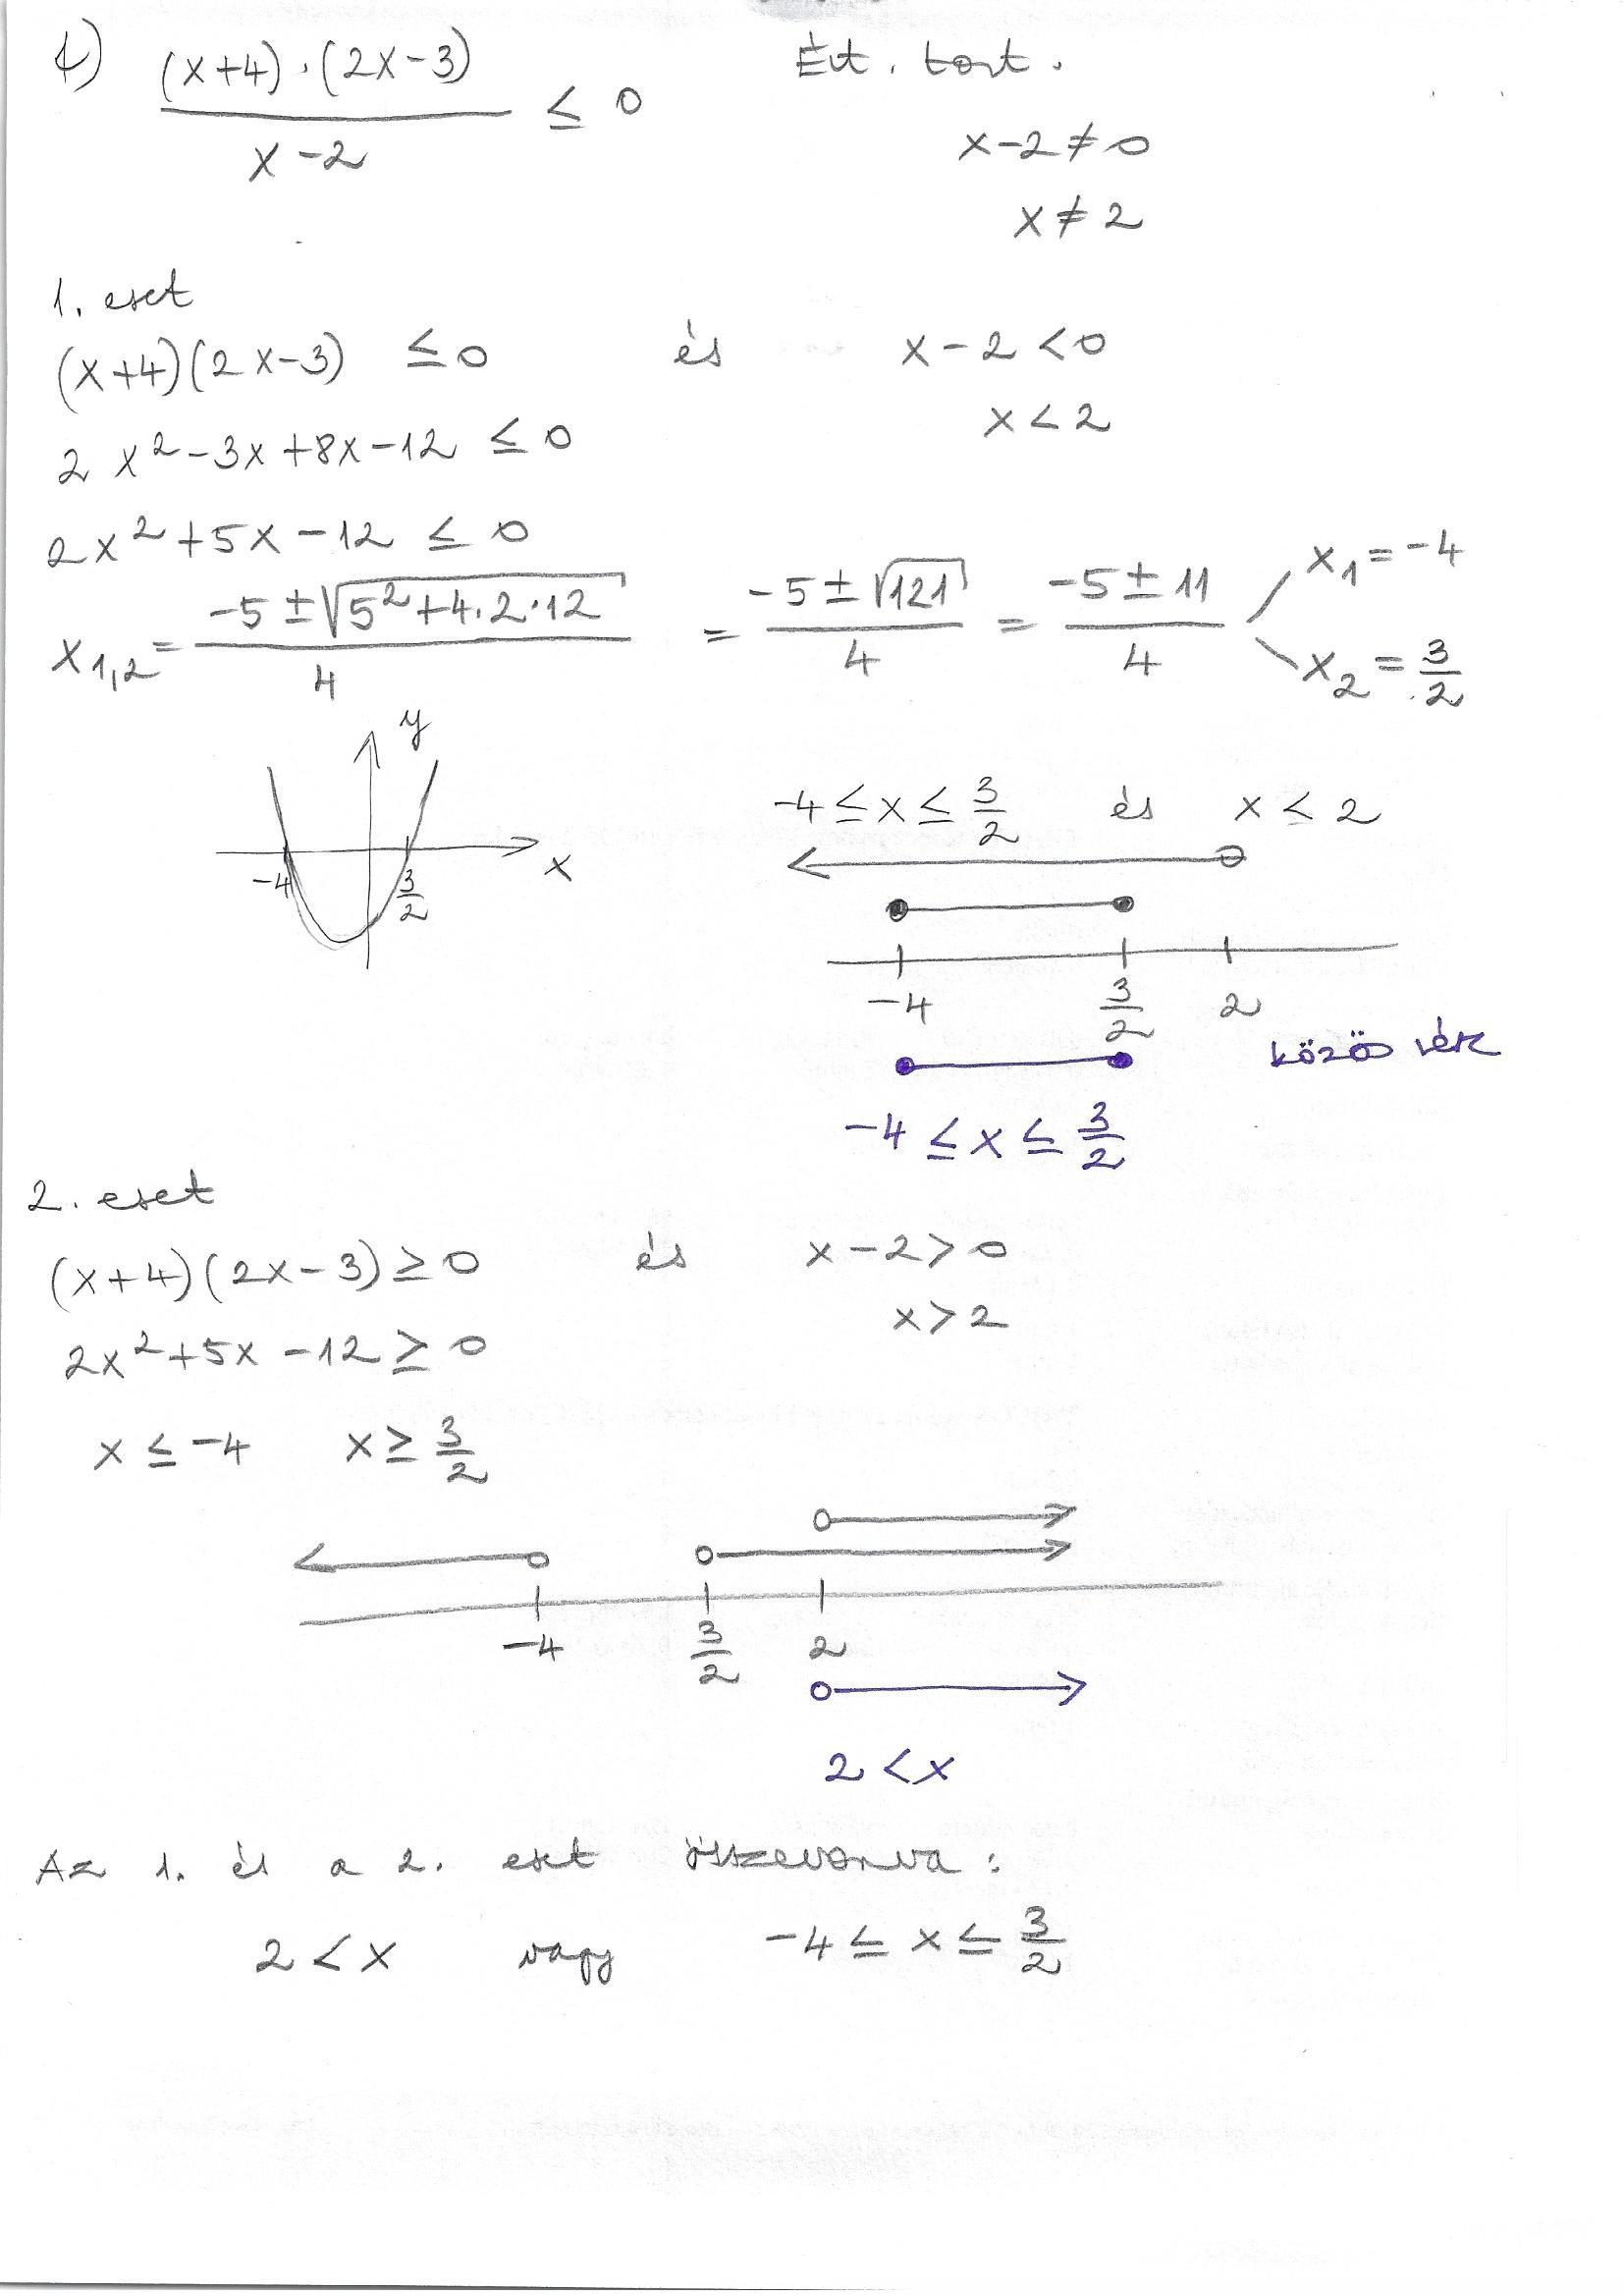 f) ((x+4)·(2x-3))/(x-2) ≤ 0 Ért. tart.
x-2≠0
x≠2
1. eset
(x+4)(2x-3) ≤0 és x-2<0
2x²-3x+8x-12 ≤0 x<2
2x²+5x-12 ≤ 0
x1,2 = (-5±√(5²+4·2·12))/4 = (-5±√121)/4 = (-5±11)/4 x1=-4
x2=3/2
y
x
-4 3/2
-4≤x≤3/2 és x<2
-4 3/2 2
közös rész
-4≤x≤3/2
2. eset
(x+4)(2x-3)≥0 és x-2>0
2x²+5x-12≥0 x>2
x≤-4 x≥3/2
-4 3/2 2
2<x
Az 1. és a 2. eset összevonva:
2<x vagy -4≤x≤3/2